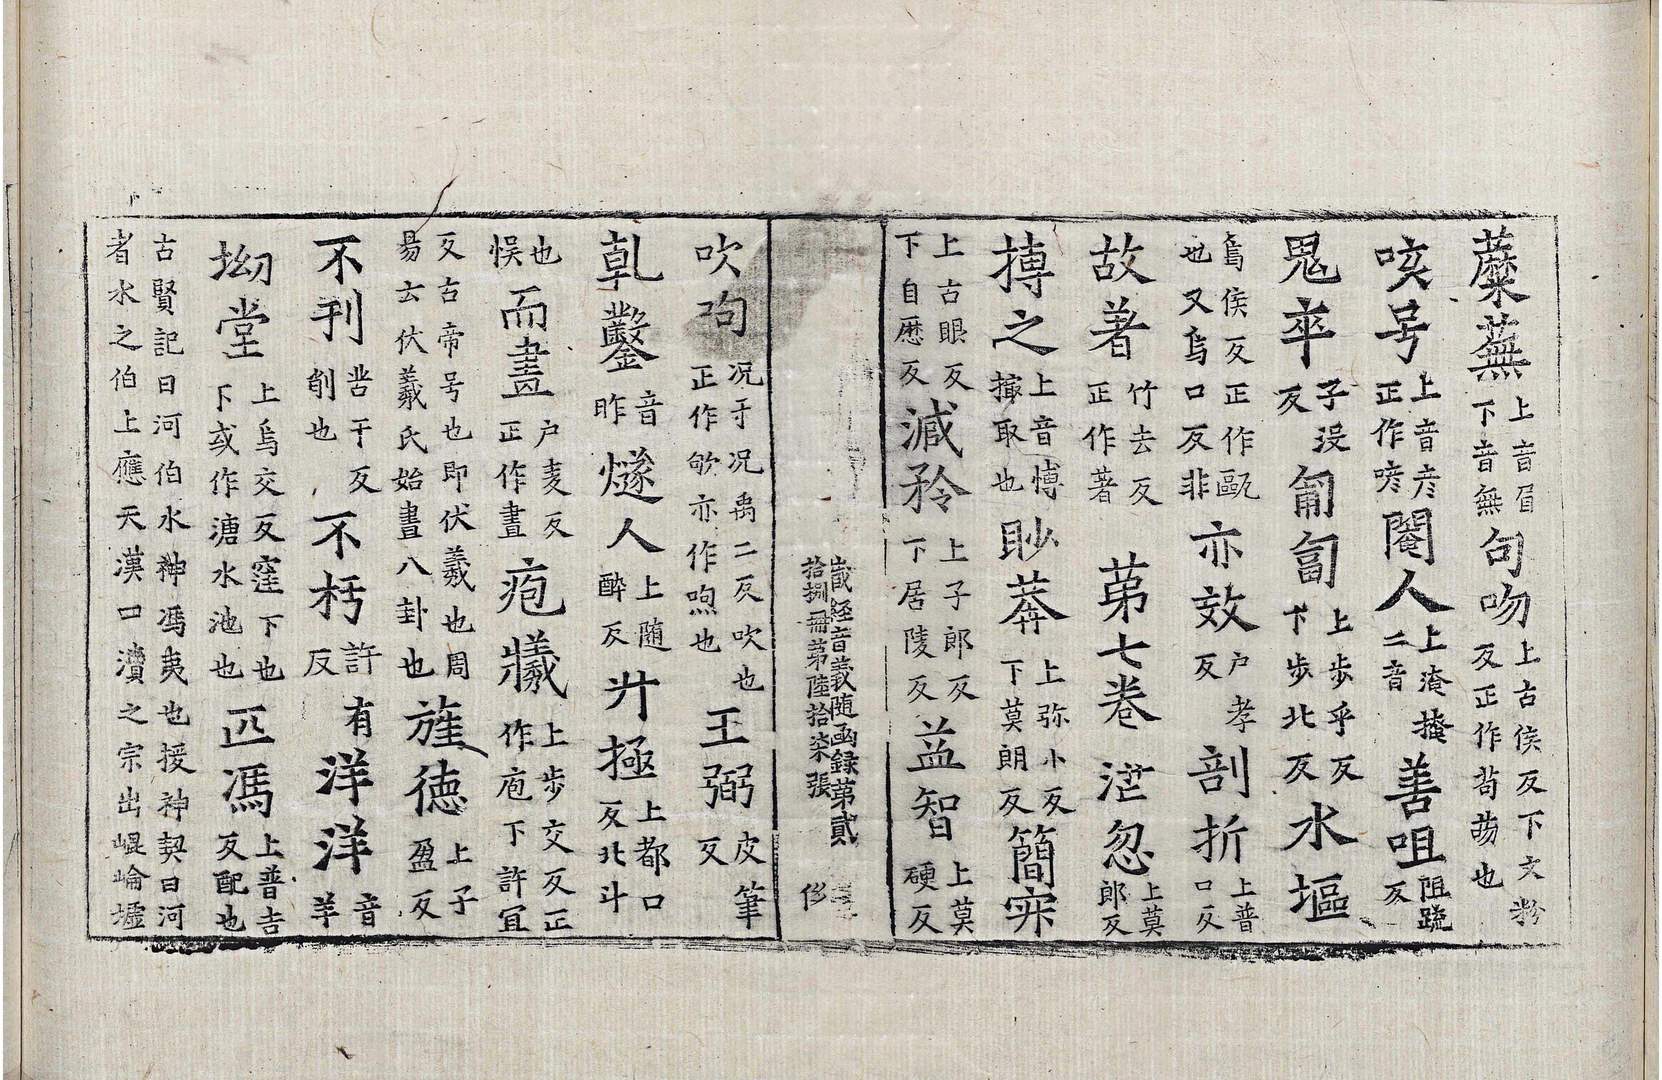 蘪蕪上音眉下音無句吻上古侯反下文粉反正作茍芴也
唉号上音彦正作喭閹人上淹掩二音善咀阻䟽反
㫰卒子沒反匍匐上步乎反下步北反水塸
烏侯反正作甌也又烏口反非亦效户孝反剖折上普口反
故著竹去反正作著第七卷茫忽上莫郎反
搏之上音博撮取也眇莽上弥小反下莫朗反簡寀
上古眼反下自歷反減矜上子郎反下居陵反益智上莫硬反
藏經音義随函録第貳拾捌冊第陸拾柒張 侈
吹呴况于况禹二反吹也正作欨亦作喣也王弼皮筆反
乹鑿音昨燧人上随醉反廾極上都口反北斗
也悮而畫户麦反正作畫疱犧上步交反正作庖下許冝
反古帝号也即伏羲也周易云伏羲氏始畫八卦也旌德上子盈反
不刊苦干反削也不朽許有反洋洋音羊
坳堂上烏交反窪下也下或作溏水池也匹馮上普吉反配也
古賢記曰河伯水神馮夷也援神契曰河者水之伯上應天漢口瀆之宗出崐崘墟